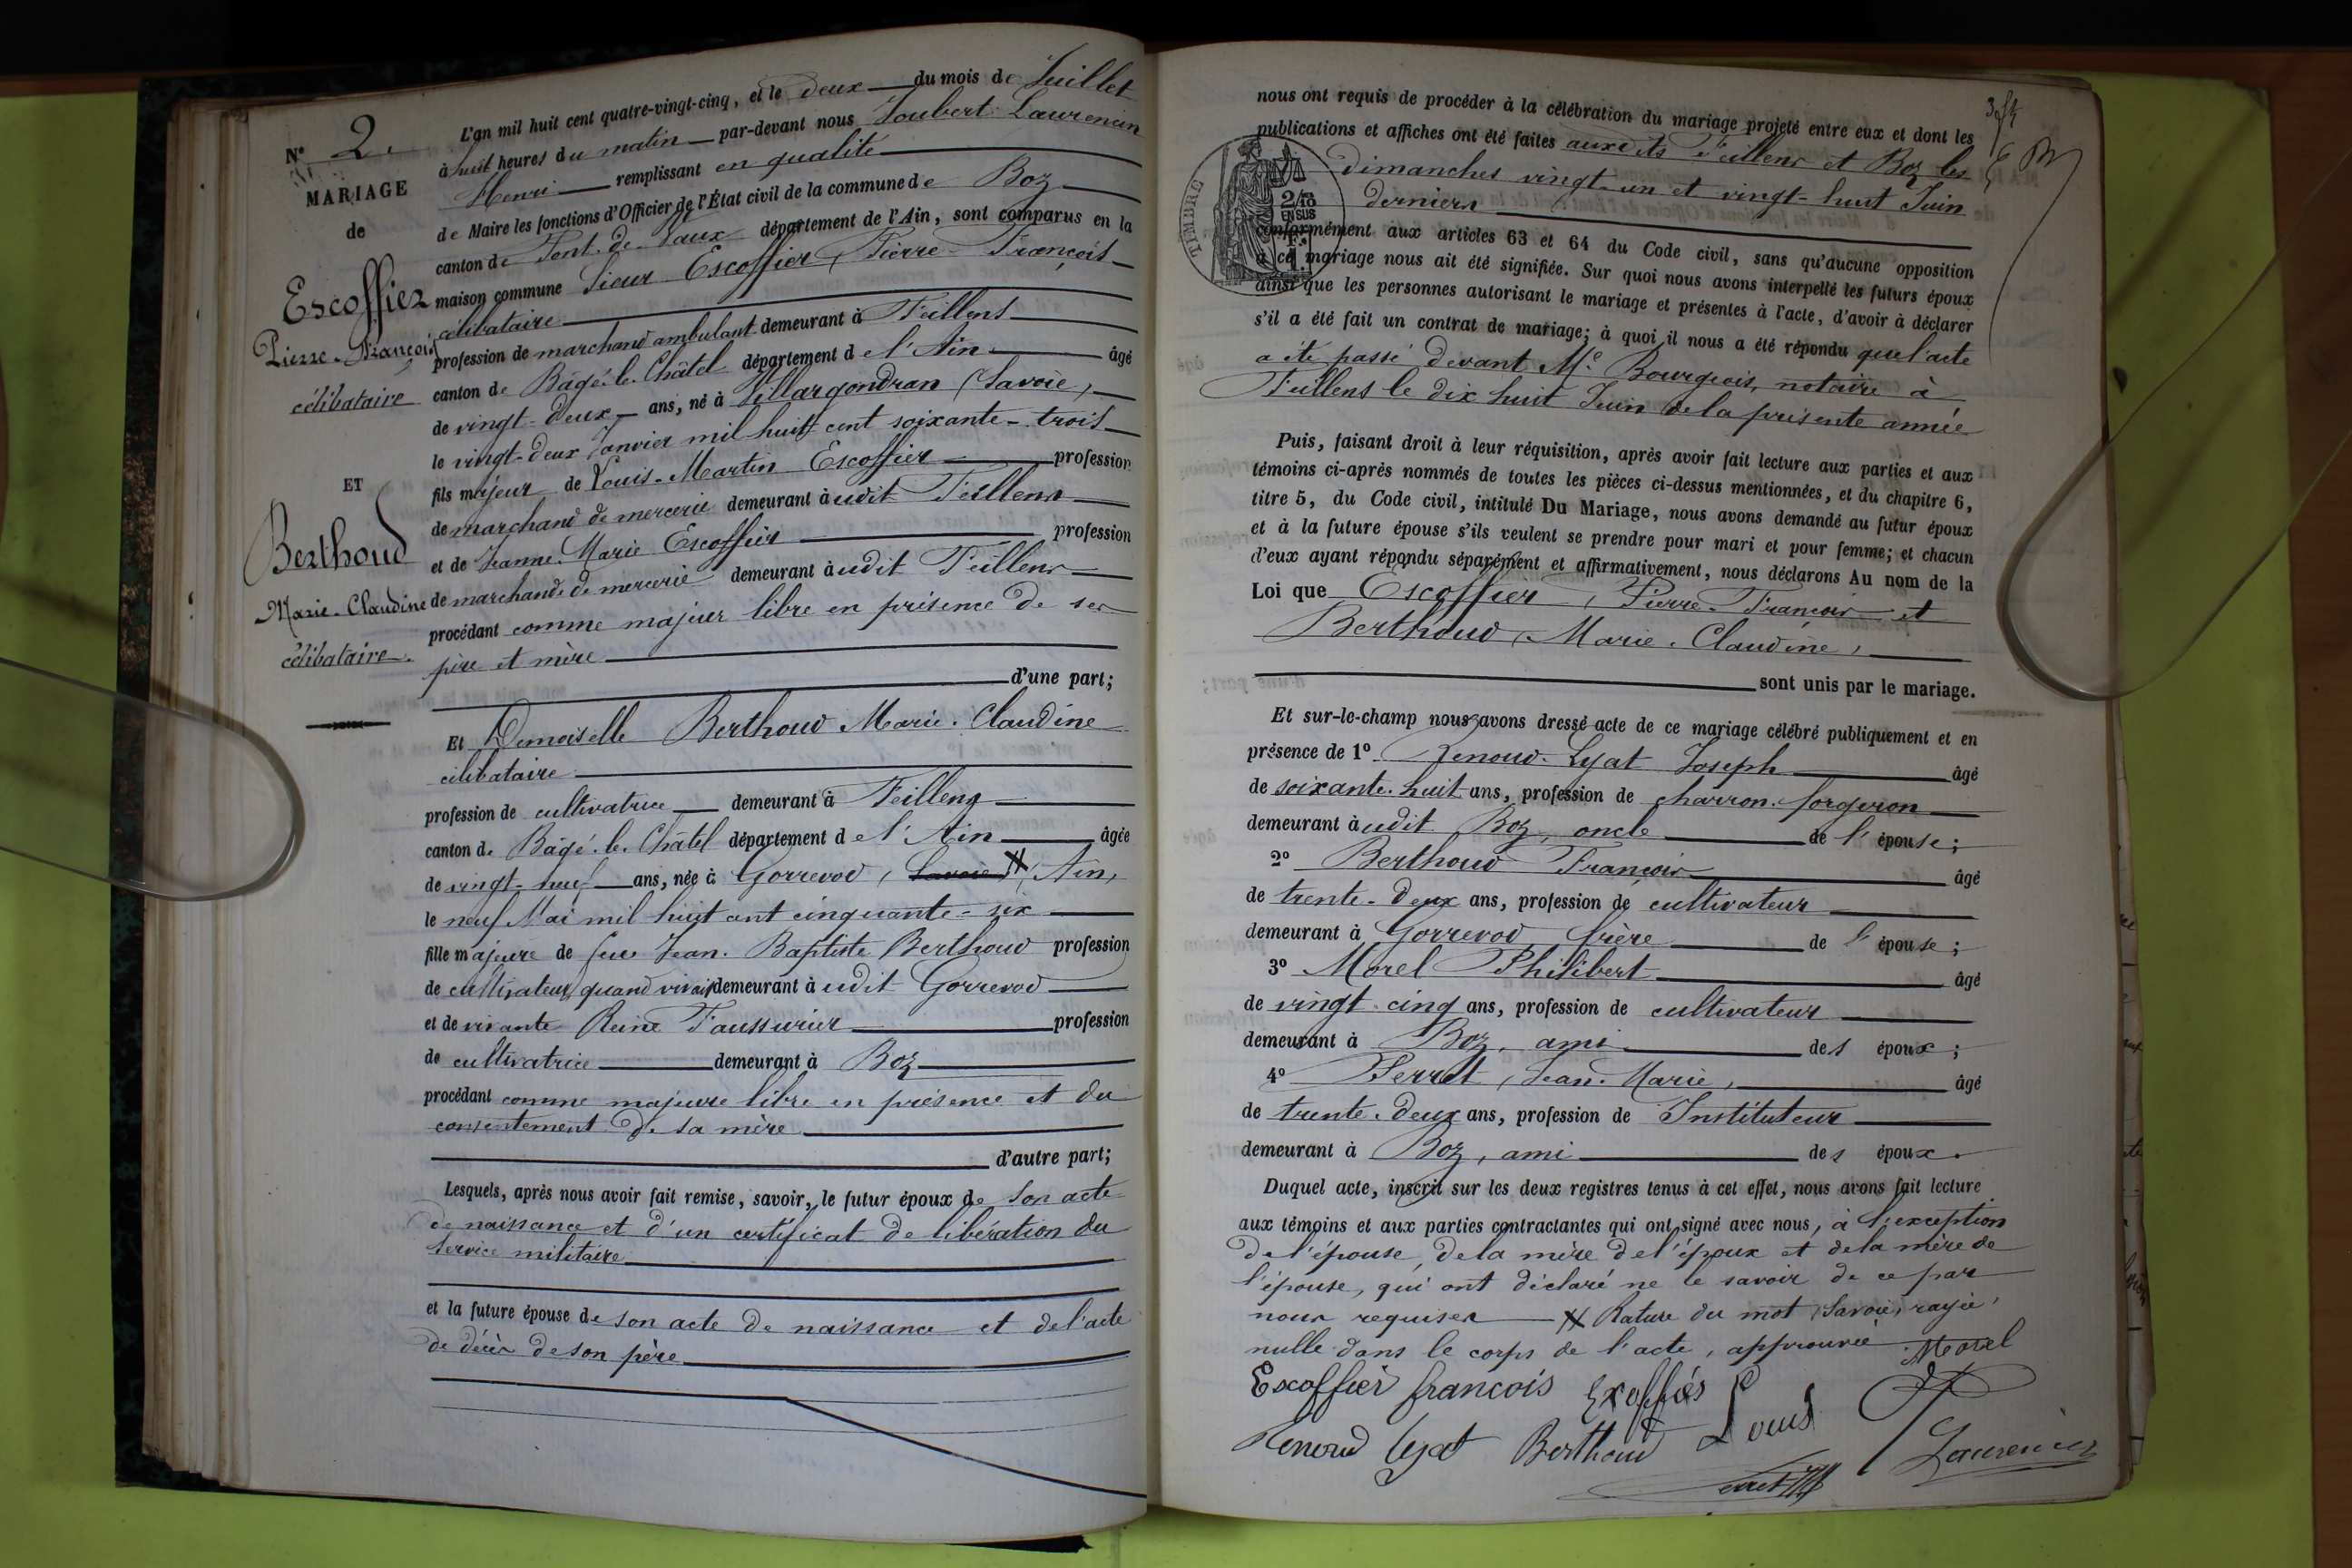 N° 2.
MARIAGE
de
Escoffier
Pierre-François
célibataire
ET
Berthoud
Marie-Claudine
célibataire.
L'an mil huit cent quatre-vingt-cinq, et le deux du mois de Juillet
à huit heures du matin par-devant nous Joubert Laurencin
Henri remplissant en qualité
de Maire les fonctions d'Officier de l'État civil de la commune de Boz
canton de Pont-de-Vaux département de l'Ain, sont comparus en la
maison commune Sieur Escoffier, Pierre-François
célibataire
profession de marchand ambulant demeurant à Feillens
canton de Bâgé-le-Châtel département de l'Ain âgé
de vingt-deux ans, né à Villargondran (Savoie)
le vingt-deux Janvier mil huit cent soixante-trois
fils majeur de Louis-Martin Escoffier profession
de marchand de mercerie demeurant àudit Feillens
et de Jeanne-Marie Escoffier profession
de marchande de mercerie demeurant àudit Feillens
procédant comme majeur libre en présence de ses
père et mère
d'une part;
Et Demoiselle Berthoud Marie-Claudine
célibataire
profession de cultivatrice demeurant à Feillens
canton de Bâgé-le-Châtel département de l'Ain âgée
de vingt-neuf ans, née à Gorrevod, Savoie X (Ain)
le neuf Mai mil huit cent cinquante-six
fille majeure de feu Jean-Baptiste Berthoud profession
de cultivateur, quand vivait demeurant àudit Gorrevod
et de vivante Reine Faussurier profession
de cultivatrice demeurant à Boz
procédant comme majeure libre en présence et du
consentement de sa mère
d'autre part;
Lesquels, après nous avoir fait remise, savoir, le futur époux de son acte
de naissance et d'un certificat de libération du
service militaire
et la future épouse de son acte de naissance et de l'acte
de décès de son père
nous ont requis de procéder à la célébration du mariage projeté entre eux et dont les
publications et affiches ont été faites auxdits Feillens et Boz les
dimanches vingt-un et vingt-huit Juin
derniers
TIMBRE
2/10
EN SUS
conformément aux articles 63 et 64 du Code civil, sans qu'aucune opposition
à ce mariage nous ait été signifiée. Sur quoi nous avons interpellé les futurs époux
ainsi que les personnes autorisant le mariage et présentes à l'acte, d'avoir à déclarer
s'il a été fait un contrat de mariage; à quoi il nous a été répondu que l'acte
a été passé devant Me Bourgeois, notaire à
Feillens le dix huit Juin de la présente année
Puis, faisant droit à leur réquisition, après avoir fait lecture aux parties et aux
témoins ci-après nommés de toutes les pièces ci-dessus mentionnées, et du chapitre 6,
titre 5, du Code civil, intitulé Du Mariage, nous avons demandé au futur époux
et à la future épouse s'ils veulent se prendre pour mari et pour femme; et chacun
d'eux ayant répondu séparément et affirmativement, nous déclarons Au nom de la
Loi que Escoffier, Pierre-François et
Berthoud, Marie-Claudine,
sont unis par le mariage.
Et sur-le-champ nous avons dressé acte de ce mariage célébré publiquement et en
présence de 1° Renoud-Lyat Joseph âgé
de soixante-huit ans, profession de charron-forgeron
demeurant àudit Boz, oncle de l'épouse;
2° Berthoud François âgé
de trente-deux ans, profession de cultivateur
demeurant à Gorrevod frère de l'épouse;
3° Morel Philibert âgé
de vingt-cinq ans, profession de cultivateur
demeurant à Boz, ami des époux;
4° Perret, Jean-Marie, âgé
de trente-deux ans, profession de Instituteur
demeurant à Boz, ami des époux.
Duquel acte, inscrit sur les deux registres tenus à cet effet, nous avons fait lecture
aux témoins et aux parties contractantes qui ont signé avec nous, à l'exception
de l'épouse, de la mère de l'époux et de la mère de
l'épouse, qui ont déclaré ne le savoir de ce par
nous requises X Rature du mot (Savoie) rayé
nulle dans le corps de l'acte, approuvée Morel
Escoffier françois Exoffier Louis
Renoud lyat Berthoud Laurencin